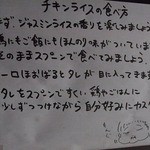 チキンライスの食べ方
ず ジャスミンライスの香りを楽しみましょう
鶏にもご飯にもほんのり味がついています
そのままスプーンで食べてみましょう
一口ほおばるとタレが目に入ってきます
タレをスプーンですくい 鶏やごはんに
少しずつつけながら自分好みにカス